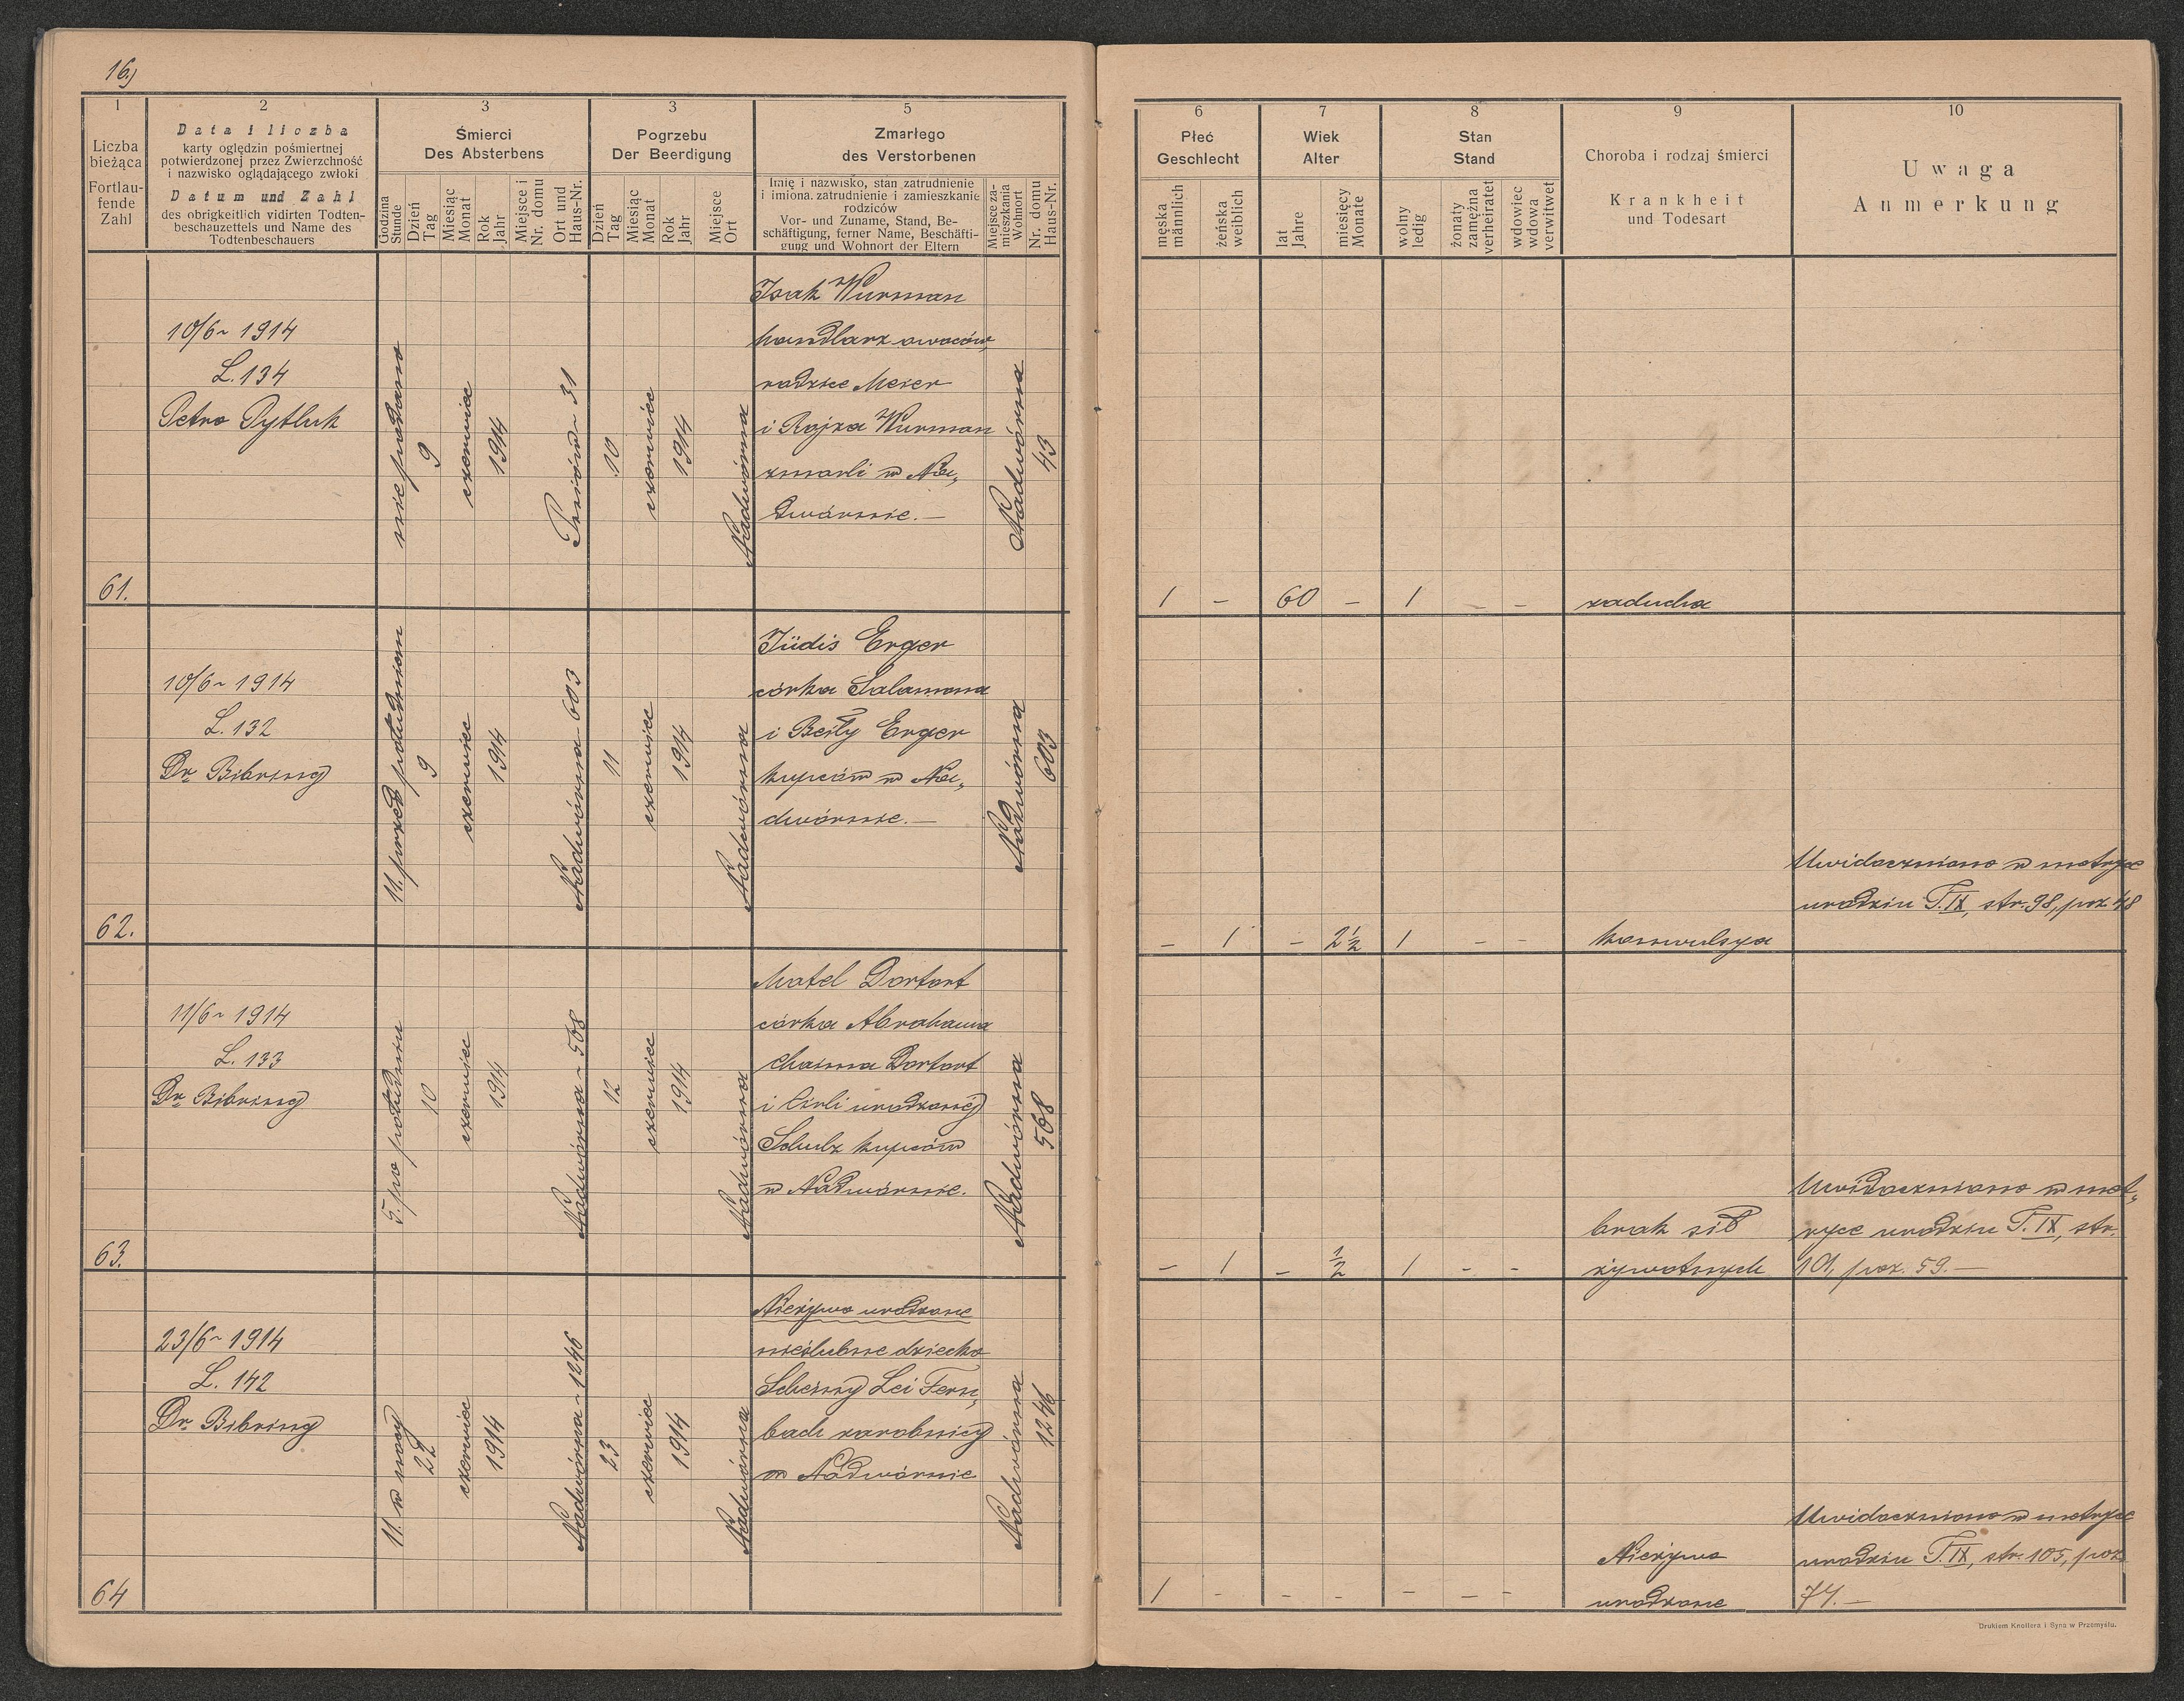 16.)
1
Liczba
bieżąca
Fortlau-
fende
Zahl
2
Data i liczba
karty oględzin pośmiertnej
potwierdzonej przez Zwierzchność
i nazwisko oglądającego zwłoki
Datum und Zahl
des obrigkeitlich vidirten Todten-
beschauzettels und Name des
Todtenbeschauers
3
Śmierci
Des Absterbens
Godzina
Stunde
Dzień
Tag
Miesiąc
Monat
Rok
Jahr
Miejsce i
Nr. domu
Ort und
Haus-Nr.
3
Pogrzebu
Der Beerdigung
Dzień
Tag
Miesiąc
Monat
Rok
Jahr
Miejsce
Ort
5
Zmarłego
des Verstorbenen
Imię i nazwisko, stan zatrudnienie
i imiona. zatrudnienie i zamieszkanie
rodziców
Vor- und Zuname, Stand, Be-
schäftigung, ferner Name, Beschäfti-
gung und Wohnort der Eltern
Miejsce za-
mieszkania
Wohnort
Nr. domu
Haus-Nr.
6
Płeć
Geschlecht
męska
männlich
żeńska
weiblich
7
Wiek
Alter
lat
Jahre
miesięcy
Monate
8
Stan
Stand
wolny
ledig
żonaty
zamężna
verheiratet
wdowiec
wdowa
verwitwet
9
Choroba i rodzaj śmierci
Krankheit
und Todesart
10
Uwaga
Anmerkung
61.
10/6 1914
L. 134
Petro Pytluk
nie podano
9
czerwiec
1914
Pniów 31
10
czerwiec
1914
Nadwórna
Isak Wurman
handlarz owoców,
rodzice Meier
i Rojza Wurman
zmarli w Na„
dwórnie. —
Nadwórna
43
1 – 60 – 1 – –
zaducha
62.
10/6 1914
L. 132
Dr. Bibring
11. przed południem
9
czerwiec
1914
Nadwórna 603
11
czerwiec
1914
Nadwórna
Jüdis Erger
córka Salamona
i Beily Erger
kupców w Na„
dwórnie. —
Nadwórna
603
– 1 – 2½ 1 – –
konwulsya
Uwidoczniono w metryce
urodzin T. IX, str. 98, poz. 48
63.
11/6 1914
L. 133
Dr. Bibring
5. po południu
10
czerwiec
1914
Nadwórna 568
12
czerwiec
1914
Nadwórna
Matel Dortort
córka Abrahama
Chaima Dortort
i Cirli urodzonej
Schulz kupców
w Nadwórnie.
Nadwórna
568
– 1 – ½ 1 – –
brak sił
żywotnych
Uwidoczniono w met„
ryce urodzin T. IX, str.
101, poz. 59. —
64
23/6 1914
L. 142
Dr. Bibring
11. w nocy
22
czerwiec
1914
Nadwórna 1246
23
czerwiec
1914
Nadwórna
Nieżywo urodzone
nieślubne dziecko
Scheiny Lei Fern„
bach zarobnicy
w Nadwórnie
Nadwórna
1246
1 – – – – – –
Nieżywo
urodzone
Uwidoczniono w metryce
urodzin T. IX, str. 105, poz.
74. —
Drukiem Knollera i Syna w Przemyślu.